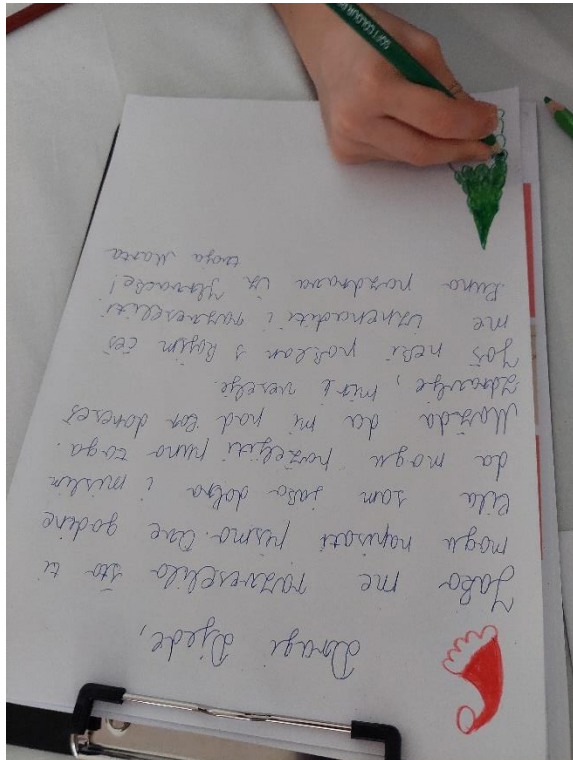 Dragi Djede,
Jako me razveselilo što ti
mogu napisati pismo. Ove godine
bila sam jako dobra i mislim
da mogu poželjeti puno toga.
Možda da mi pod bor doneseš
zdravlje, mir i veselje.
Još neki poklon s kojim ćeš
me iznenaditi i razveseliti
Puno pozdrava iz Hrvatske!
tvoja Marta
SOFT COLOUR